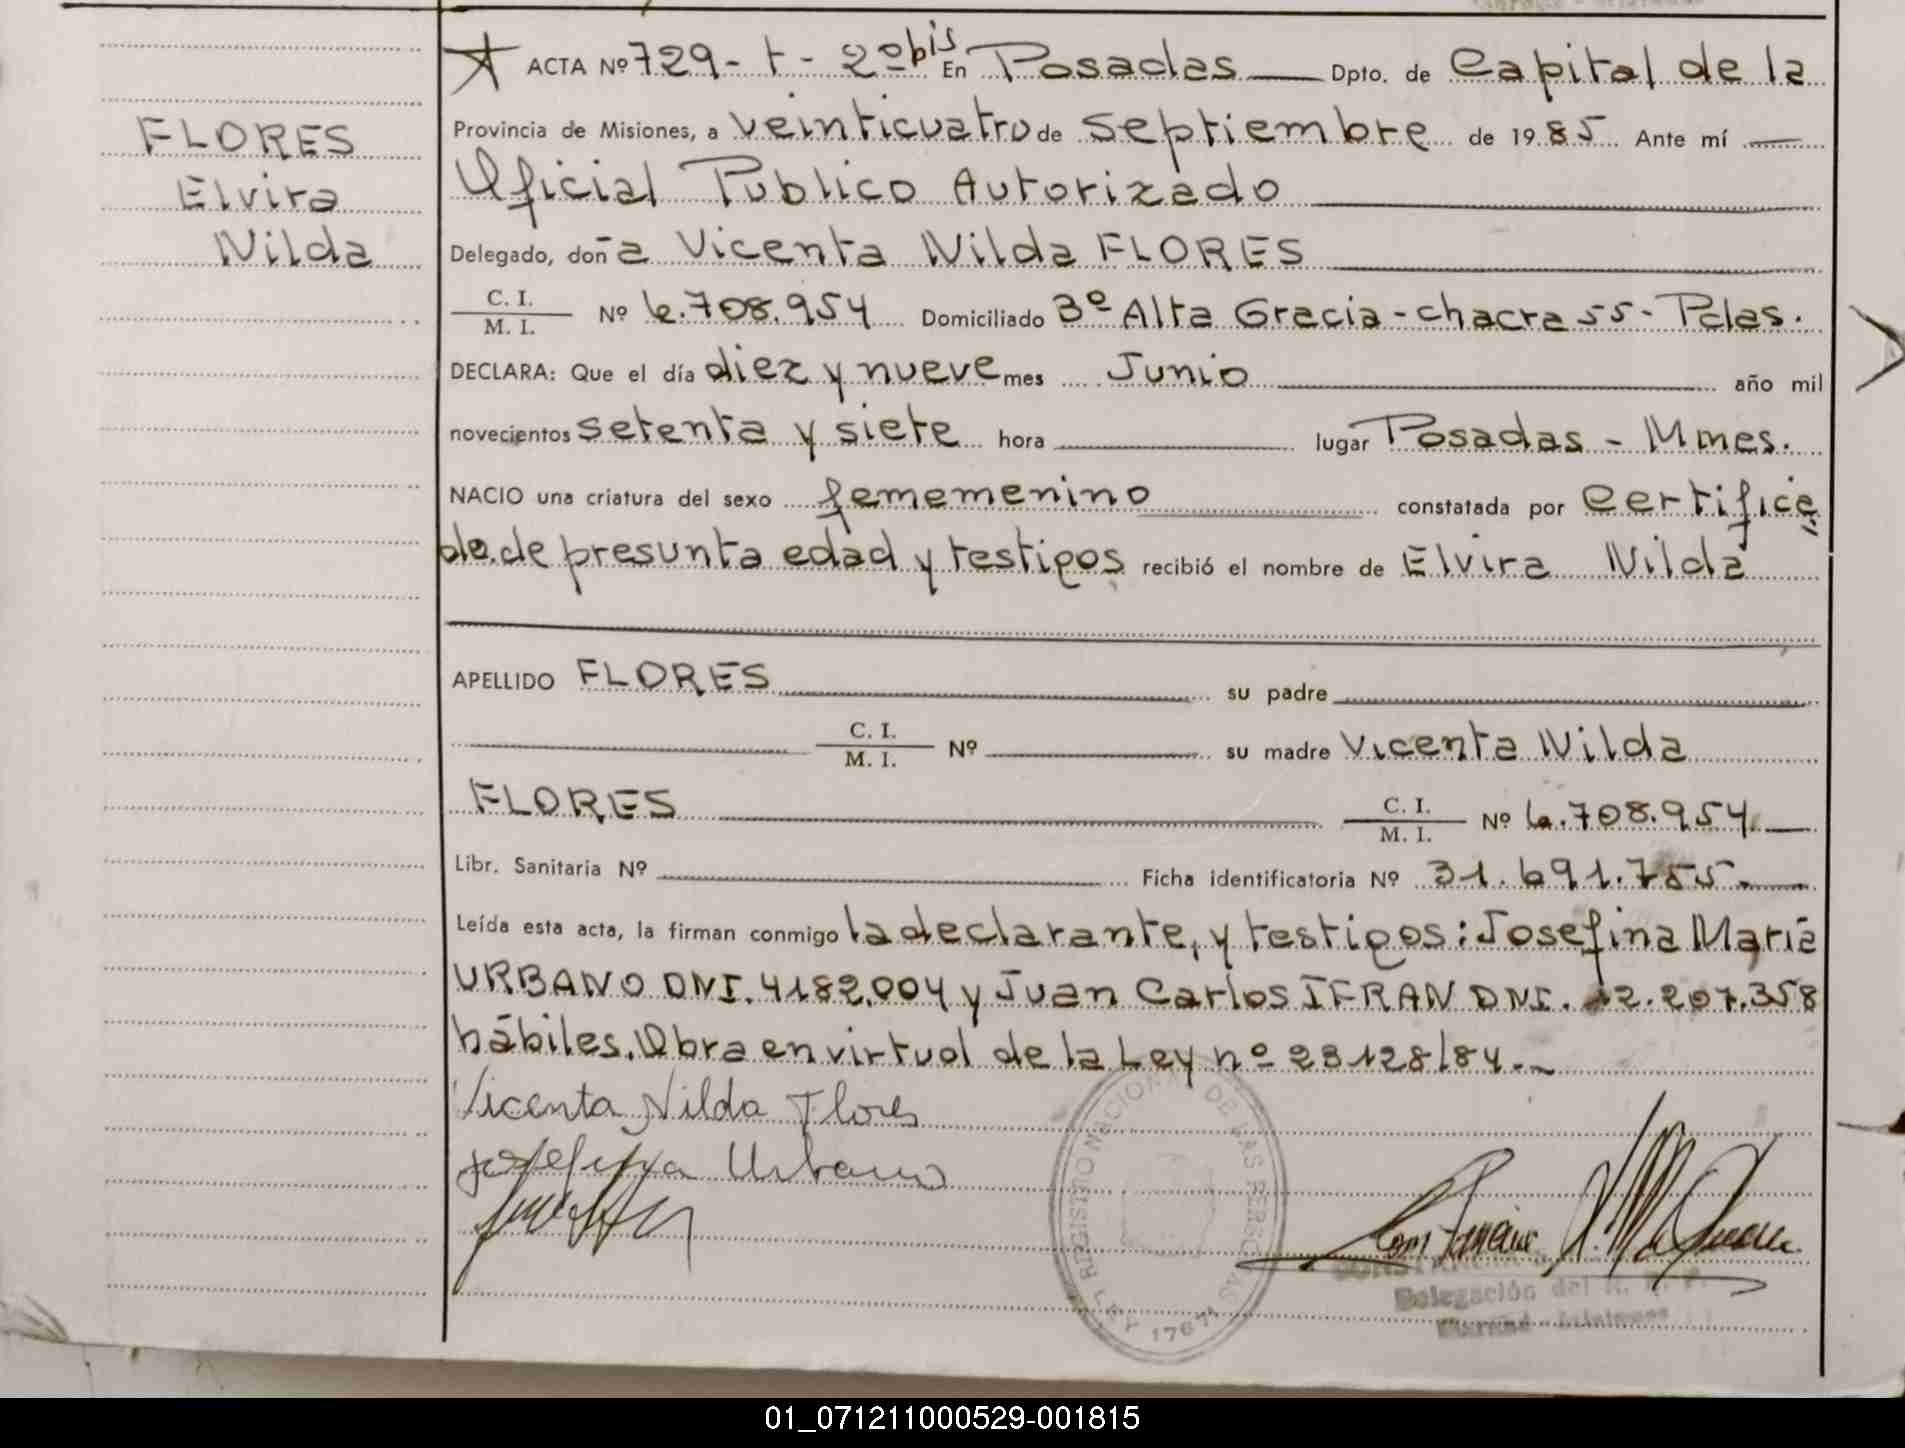 FLORES
Elvira
Nilda
ACTA Nº 729 - t - 2º bis En Posadas Dpto. de Capital de la
Provincia de Misiones, a veinticuatro de septiembre de 1985 Ante mí
Oficial Publico Autorizado
Delegado, doña Vicenta Nilda FLORES
C. I.
M. I. Nº 6.708.954 Domiciliado 3º Alta Gracia - chacra 55 - Pdas.
DECLARA: Que el día diez y nueve mes Junio año mil
novecientos setenta y siete hora lugar Posadas - Mnes.
NACIO una criatura del sexo fememenino constatada por Certifica
do de presunta edad y testigos recibió el nombre de Elvira Nilda
APELLIDO FLORES su padre
C. I.
M. I. Nº su madre Vicenta Nilda
FLORES C. I.
M. I. Nº 6.708.954
Libr. Sanitaria Nº Ficha identificatoria Nº 31.691.755
Leída esta acta, la firman conmigo la declarante, y testigos: Josefina María
URBANO DNI. 4182.004 y Juan Carlos IFRAN DNI. 12.207.358
hábiles. Obra en virtud de la Ley nº 23128/84.-
Vicenta Nilda Flores
Josefina Urbano
REGISTRO NACIONAL DE LAS PERSONAS
LEY 17671
Delegación del R.
01_071211000529-001815